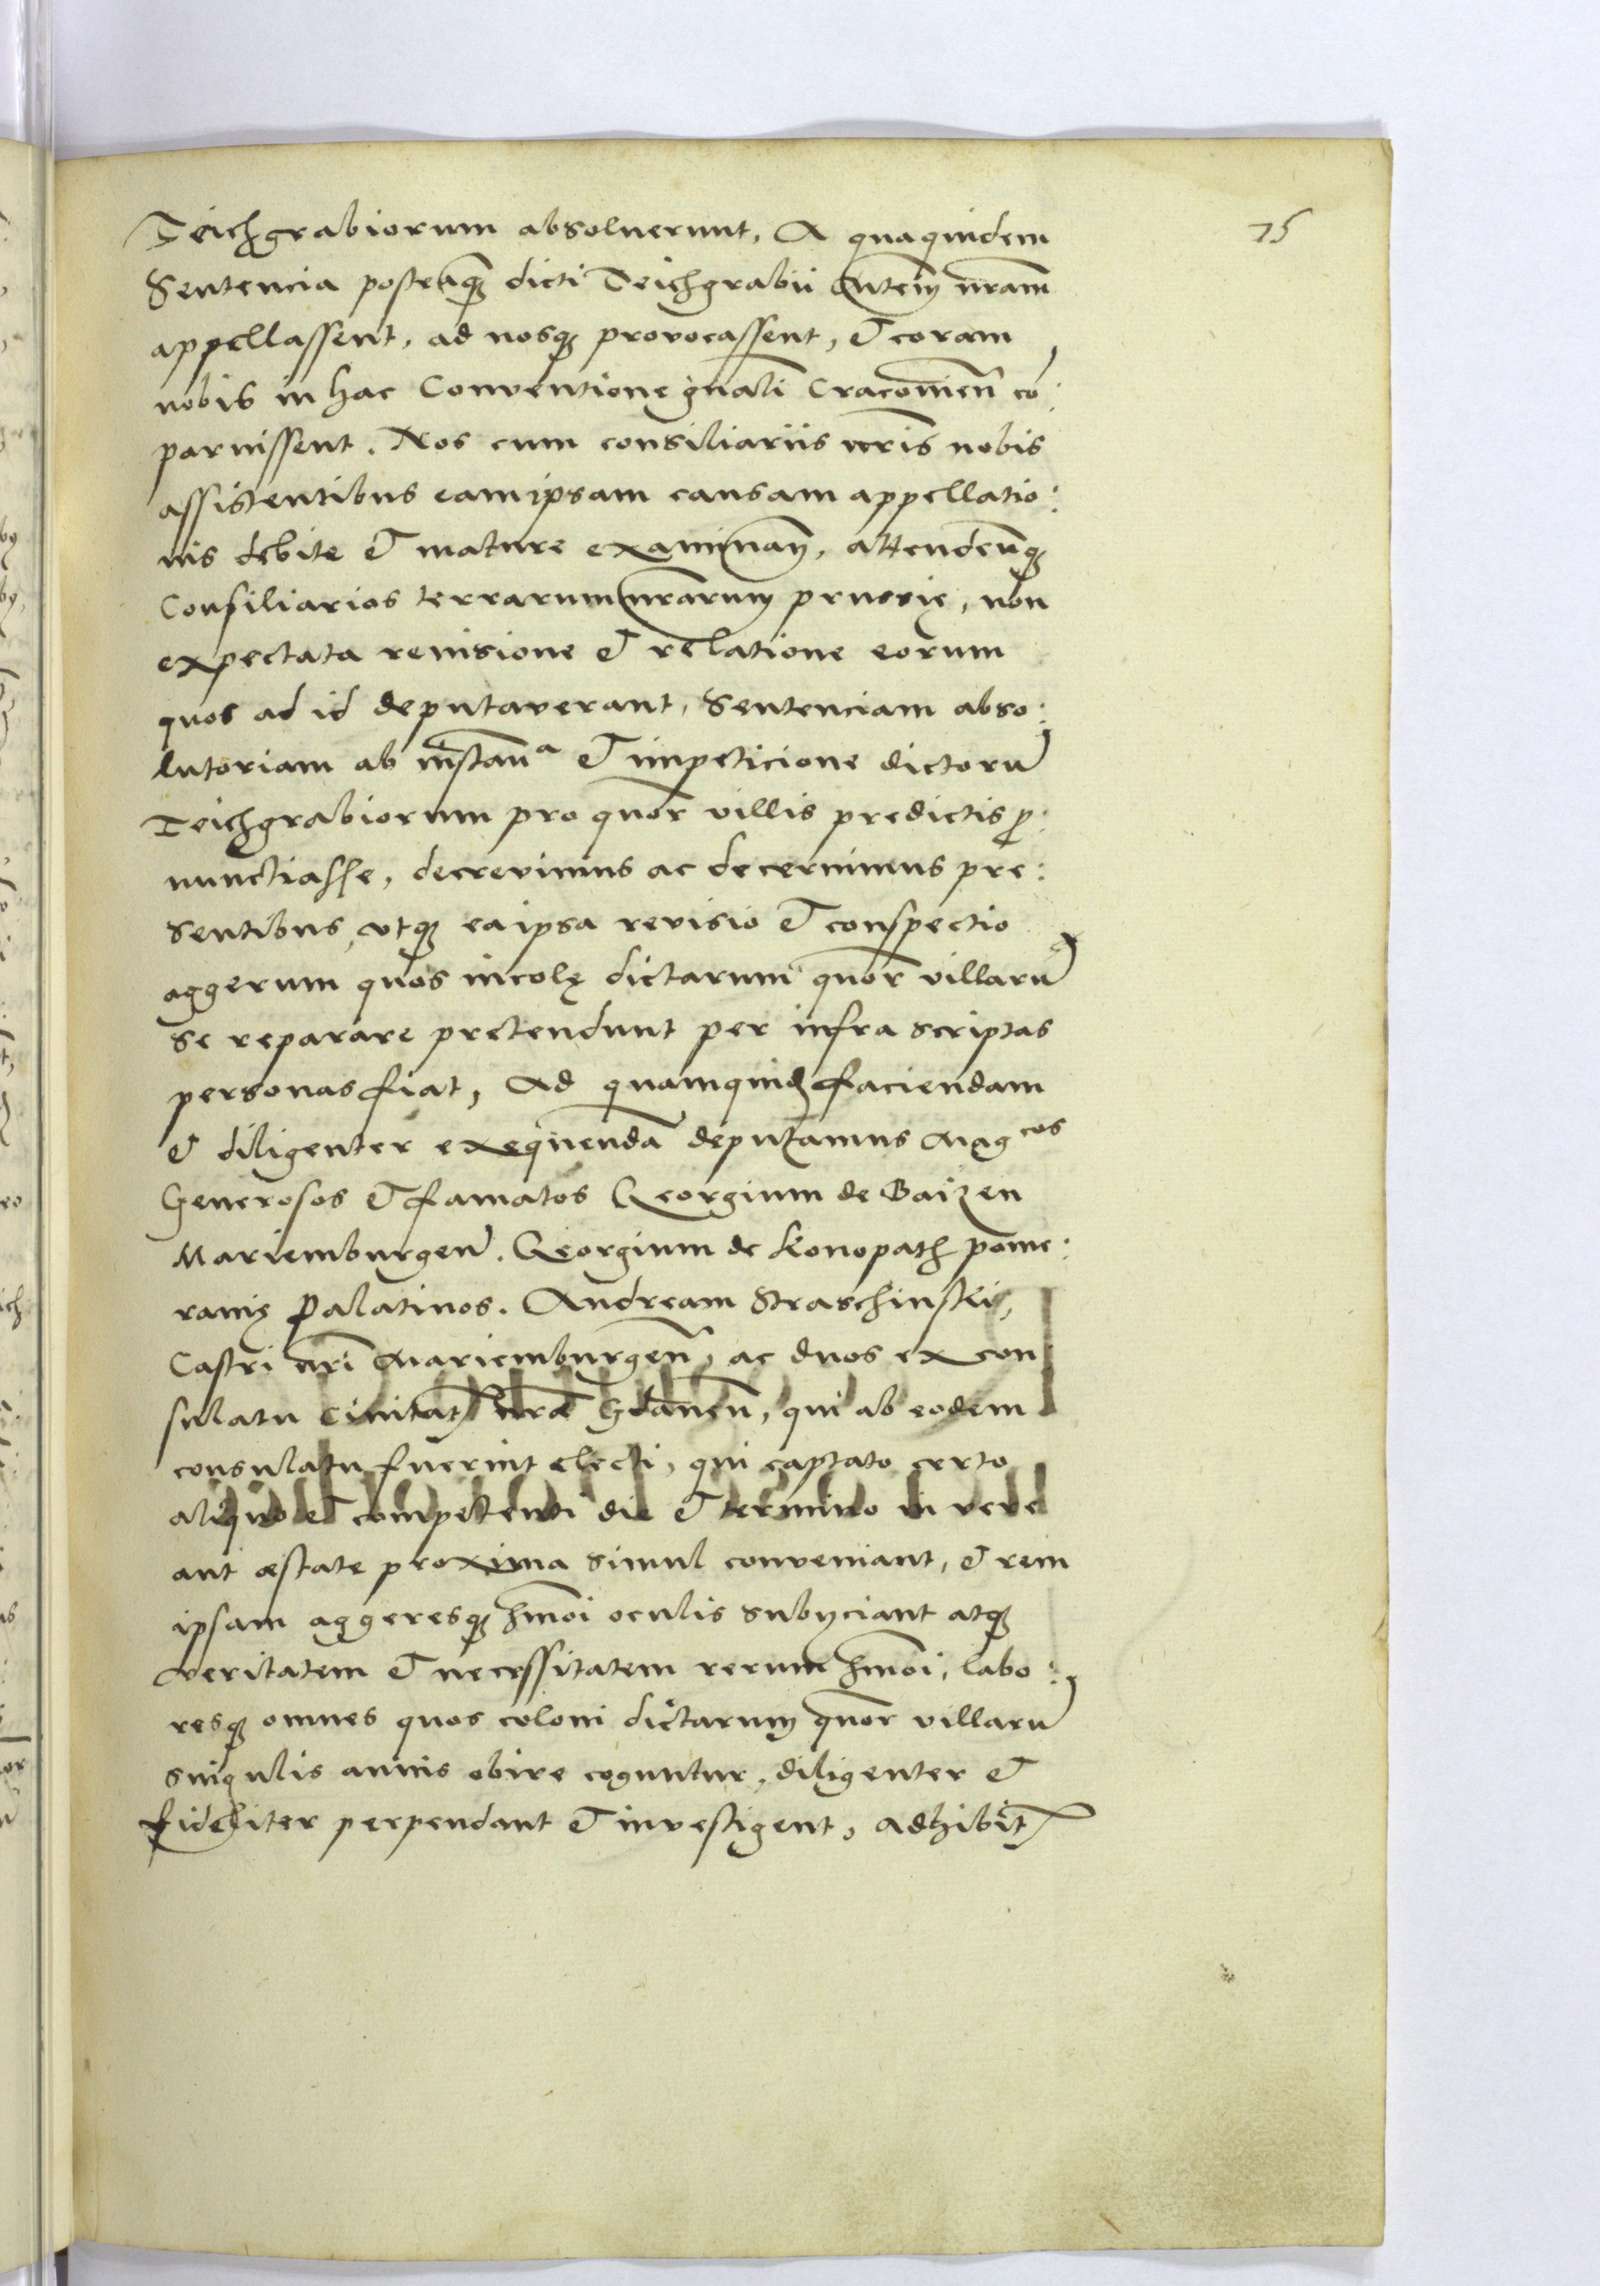 75
Teichgrabiorum absoluerunt, A quaquidem
Sentencia posteaq dicti Teichgrabii Mtem nram
appellassent, ad nosq provocassent, et coram
nobis in hac Conventione gnali Cracovien co
paruissent. Nos cum consiliariis nris nobis
assistentibus eam ipsam causam appellatio:
nis debite et mature examinan, attendenq
Consiliarios terrarum nrarum prussię, non
expectata revisione et relatione eorum
quos ad id deputaverant, Sentenciam abso:
lutoriam ab instan a et impeticione dictoru
Teichgrabiorum pro quor villis predictis p:
nunctiasse, decrevimus ac decernimus pre:
sentibus, vtq ea ipsa revisio et conspectio
aggerum quos incolę dictarum quor villaru
se reparare pretendunt per infra scriptas
personas fiat, Ad quamquid faciendam
et diligenter exequenda deputamus Mag cos
Generosos et famatos Georgium de Baizen
Mariemburgen. Georgium de Konopath pome:
ranię Palatinos. Andream Straschinski,
Castri nri Mariemburgen, ac duos ex con
sulatu Civitat nræ Gdanen, qui ab eodem
consulatu fuerint electi, qui captato certo
aliquo et competenti die et termino in vere
aut æstate proxima simul conveniant, et rem
ipsam aggeresq hmoi oculis subyciant atq
veritatem et necessitatem rerum hmoi, labo:
resq omnes quos coloni dictarum quor villaru
singulis annis obire coguntur, diligenter et
fideliter perpendant et investigent, adhibit